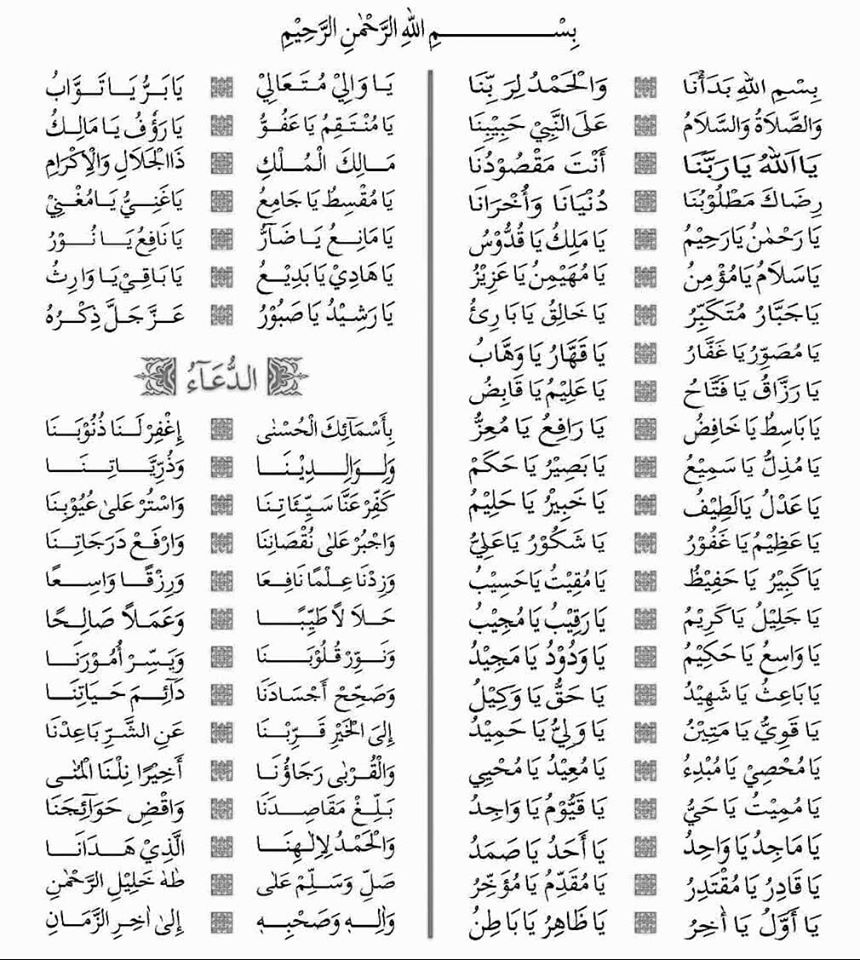 بِسْــــــمِ اللهِ الرَّحْمٰنِ الرَّحِيْمِ
بِسْمِ اللهِ بَدَأْنَا وَالْحَمْدُ لِرَبِّنَا
وَالصَّلَاةُ وَالسَّلَامُ عَلَى النَّبِيِّ حَبِيْبِنَا
يَا اَللهُ يَا رَبَّنَا أَنْتَ مَقْصُوْدُنَا
رِضَاكَ مَطْلُوْبُنَا دُنْيَانَا وَأُخْرَانَا
يَا رَحْمٰنُ يَا رَحِيْمُ يَا مَلِكُ يَا قُدُّوْسُ
يَا سَلَامُ يَا مُؤْمِنُ يَا مُهَيْمِنُ يَا عَزِيْزُ
يَا جَبَّارُ مُتَكَبِّرُ يَا خَالِقُ يَا بَارِئُ
يَا مُصَوِّرُ يَا غَفَّارُ يَا قَهَّارُ يَا وَهَّابُ
يَا رَزَّاقُ يَا فَتَّاحُ يَا عَلِيْمُ يَا قَابِضُ
يَا بَاسِطُ يَا خَافِضُ يَا رَافِعُ يَا مُعِزُّ
يَا مُذِلُّ يَا سَمِيْعُ يَا بَصِيْرُ يَا حَكَمْ
يَا عَدْلُ يَالَطِيْفُ يَا خَبِيْرُ يَا حَلِيْمُ
يَا عَظِيْمُ يَا غَفُوْرُ يَا شَكُوْرُ يَا عَلِيُّ
يَا كَبِيْرُ يَا حَفِيْظُ يَا مُقِيْتُ يَا حَسِيْبُ
يَا جَلِيْلُ يَا كَرِيْمُ يَا رَقِيْبُ يَا مُجِيْبُ
يَا وَاسِعُ يَا حَكِيْمُ يَا وَدُوْدُ يَا مَجِيْدُ
يَا بَاعِثُ يَا شَهِيْدُ يَا حَقُّ يَا وَكِيْلُ
يَا قَوِيُّ يَا مَتِيْنُ يَا وَلِيُّ يَا حَمِيْدُ
يَا مُحْصِيْ يَا مُبْدِءُ يَا مُعِيْدُ يَا مُحْيِي
يَا مُمِيْتُ يَا حَيُّ يَا قَيُّوْمُ يَا وَاجِدُ
يَا مَاجِدُ يَا وَاحِدُ يَا أَحَدُ يَا صَمَدُ
يَا قَادِرُ يَا مُقْتَدِرُ يَا مُقَدِّمُ يَا مُؤَخِّرُ
يَا أَوَّلُ يَا أٰخِرُ يَا ظَاهِرُ يَا بَاطِنُ
يَا وَالِيْ مُتَعَالِيْ يَا بَرُّ يَا تَوَّابُ
يَا مُنْتَقِمُ يَا عَفُوُّ يَا رَؤُفُ يَا مَالِكُ
مَالِكَ الْمُلْكِ ذَا الْجَلَالِ وَالْاِكْرَامِ
يَا مُقْسِطُ يَا جَامِعُ يَا غَنِيُّ يَا مُغْنِيْ
يَا مَانِعُ يَا ضَآرُّ يَا نَافِعُ يَا نُوْرُ
يَا هَادِيْ يَا بَدِيْعُ يَا بَاقِيْ يَا وَارِثُ
يَا رَشِيْدُ يَا صَبُوْرُ عَزَّ جَلَّ ذِكْرُهُ
الدُّعَآءُ
بِأَسْمَآئِكَ الْحُسْنٰى إِغْفِرْ لَنَا ذُنُوْبَنَا
وَلِوَالِدِيْنَا وَذُرِّيَّاتِنَا
كَفِّرْ عَنَّا سَيِّئَاتِنَا وَاسْتُرْ عَلٰى عُيُوْبِنَا
وَاجْبُرْ عَلٰى نُقْصَانِنَا وَارْفَعْ دَرَجَاتِنَا
وَزِدْنَا عِلْمًا نَافِعَا وَرِزْقًا وَاسِعًا
حَلَالًا طَيِّبًا وَعَمَلًا صَالِحًا
وَنَوِّرْ قُلُوْبَنَا وَيَسِّرْ أُمُوْرَنَا
وَصَحِّحْ أَجْسَادَنَا دَآئِمَ حَيَاتِنَا
إِلَى الْخَيْرِ قَرِّبْنَا عَنِ الشَّرِّ بَاعِدْنَا
وَالْقُرْبٰى رَجَاؤُنَا أَخِيْرًا نِلْنَا الْمُنٰى
بَلِّغْ مَقَاصِدَنَا وَاقْضِ حَوَآئِجَنَا
وَالْحَمْدُ لِإِلٰهِنَا الَّذِيْ هَدَانَا
صَلِّ وَسَلِّمْ عَلٰى طٰهٰ خَلِيْلِ الرَّحْمٰنِ
وَاٰلِهٖ وَصَحْبِهٖ إِلٰى اٰخِرِ الزَّمَانِ